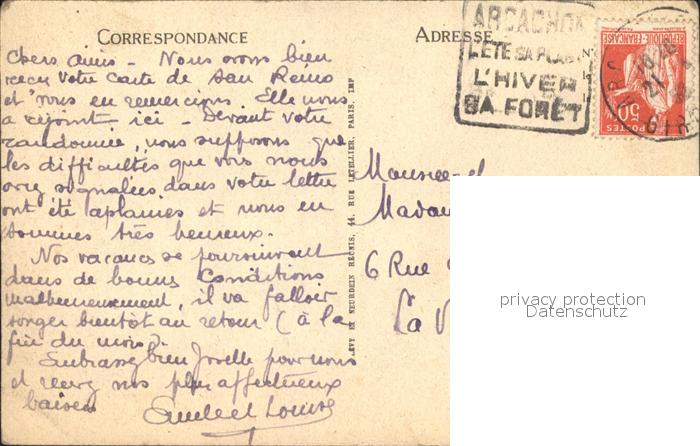 CORRESPONDANCE
Chers amis - Nous avons bien
reçu votre carte de San Remo
et vous en remercions. Elle nous
a rejoint ici - Devant votre
randonnée, nous supposons que
les difficultés que vous nous
aviez signalées dans votre lettre
ont été aplanies et nous en
sommes très heureux.
Nos vacances se poursuivent
dans de bonnes conditions
malheureusement, il va falloir
songer bientôt au retour (à la
fin du mois).
Embrassez bien Joselle pour nous
et recevez nos plus affectueux
baisers
et Louise
LÉVY ET NEURDEIN RÉUNIS, 44, RUE LETELLIER, PARIS, IMP
ADRESSE
ARCACHON
L'ÉTÉ SA PLAGE
L'HIVER
SA FORÊT
RÉPUBLIQUE FRANÇAISE
50c
POSTES
21
Monsieur et
6 Rue
La V
privacy protection
Datenschutz